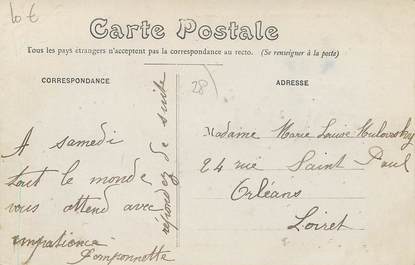 10 €
Carte Postale
Tous les pays étrangers n'acceptent pas la correspondance au recto. (Se renseigner à la poste)
CORRESPONDANCE
28
ADRESSE
A samedi
tout le monde
vous attend avec
impatience
Pomponnette
répondez de suite
Madame Marie Louise
24 rue Saint Paul
Orléans
Loiret